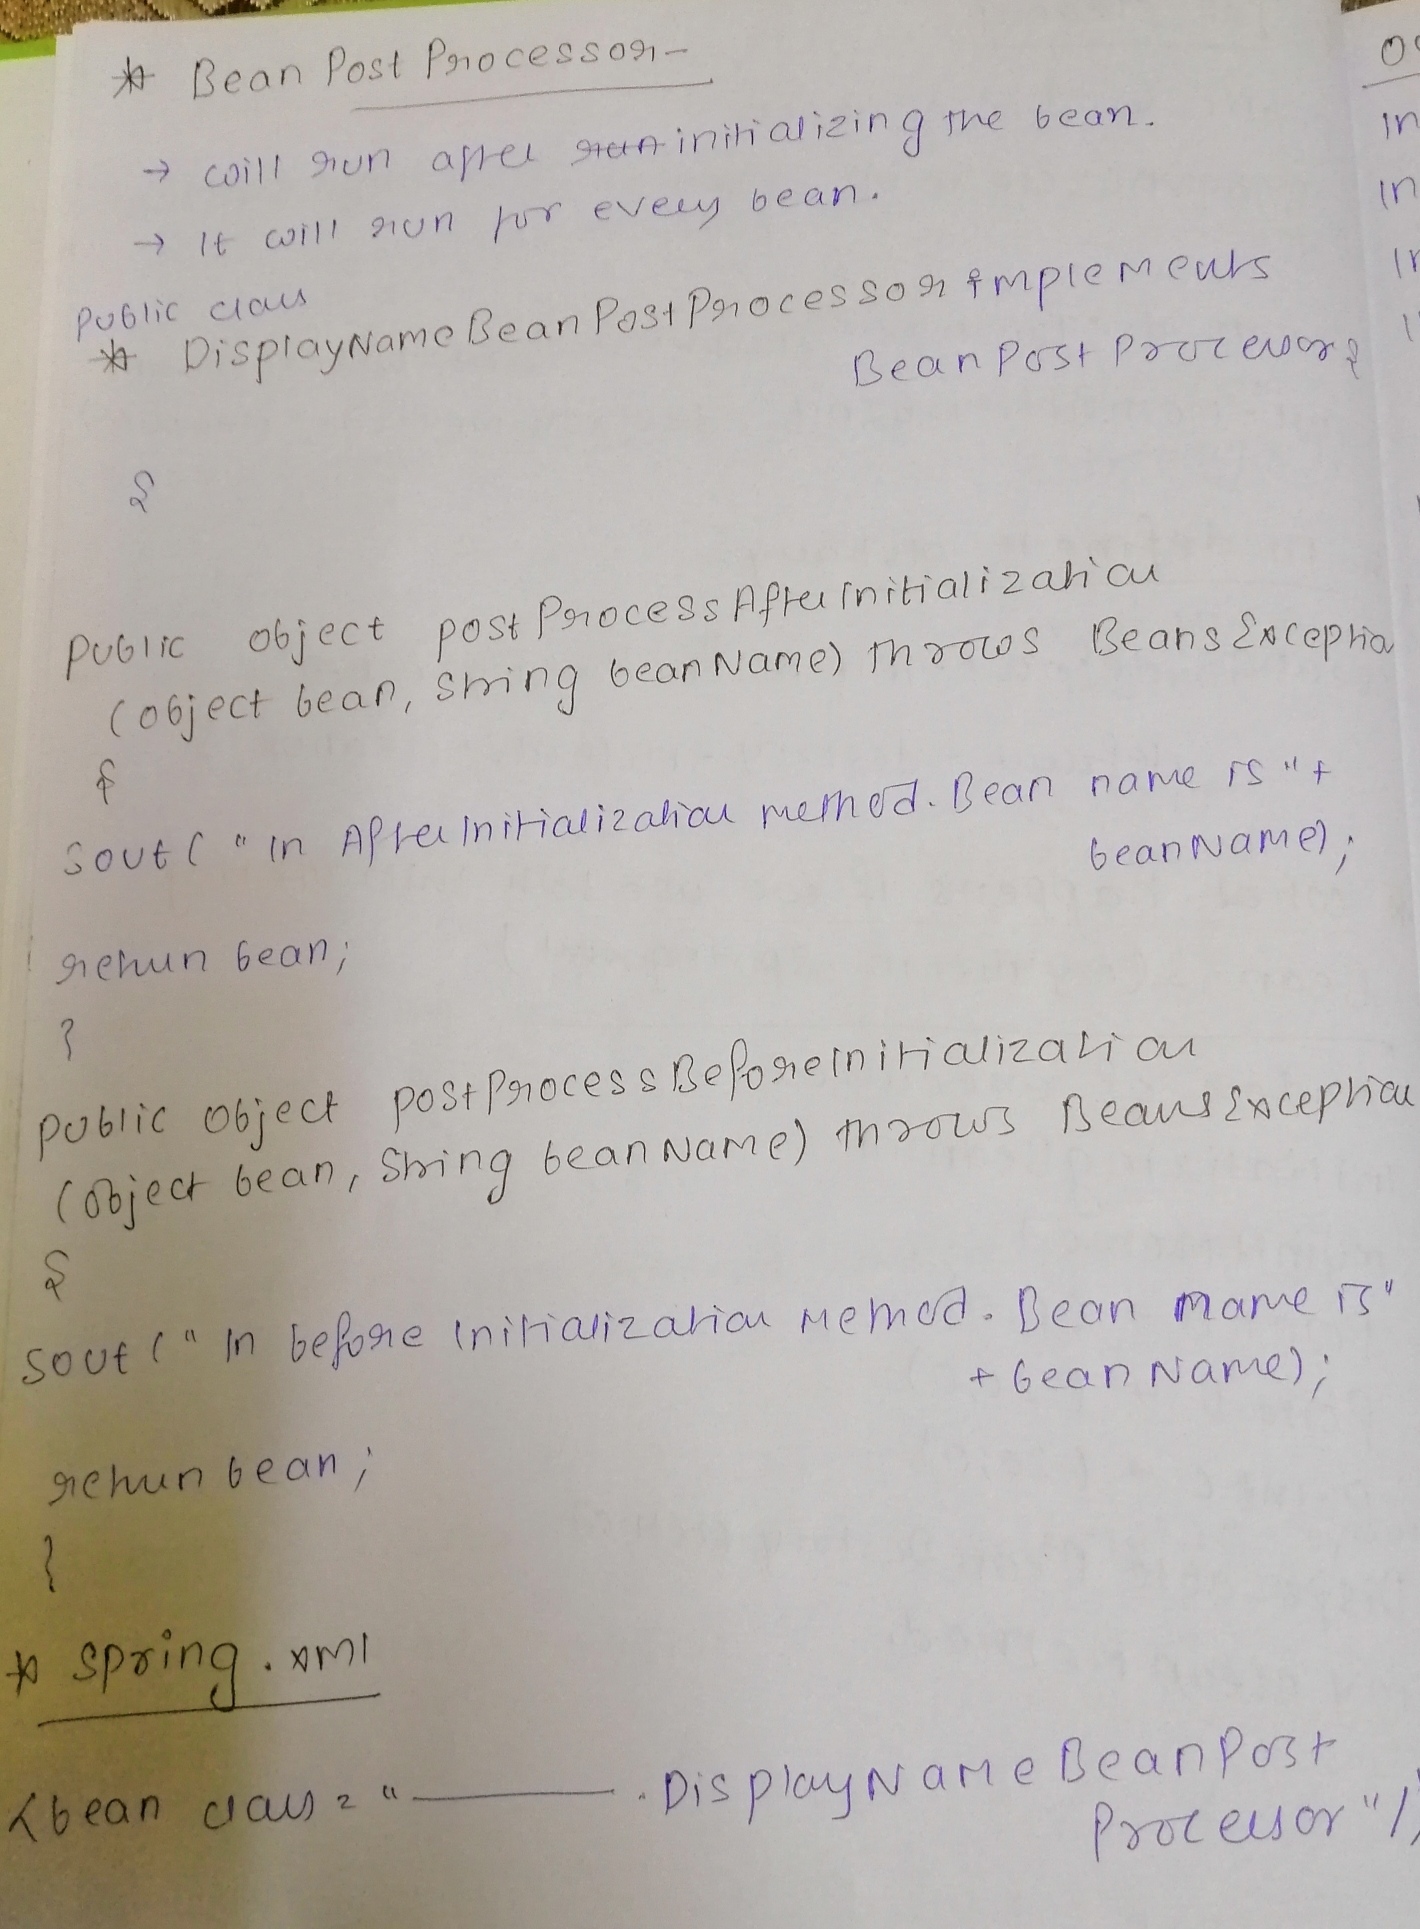 * Bean Post Processor-
→ will run after initializing the bean.
→ It will run for every bean.
public class
* DisplayNameBeanPostProcessor implements
BeanPostProcessor {
{
public object postProcessAfterInitialization
(object bean, String beanName) throws BeansExceptio
{
sout ( " In AfterInitialization method. Bean name is " +
beanName);
return bean;
}
public object postProcessBeforeInitialization
(object bean, String beanName) throws BeansException
{
sout ( " In before Initialization Method. Bean name is "
+ beanName);
return bean;
}
* spring.xml
<bean class = " ——— .DisplayNameBeanPost
Processor"/>